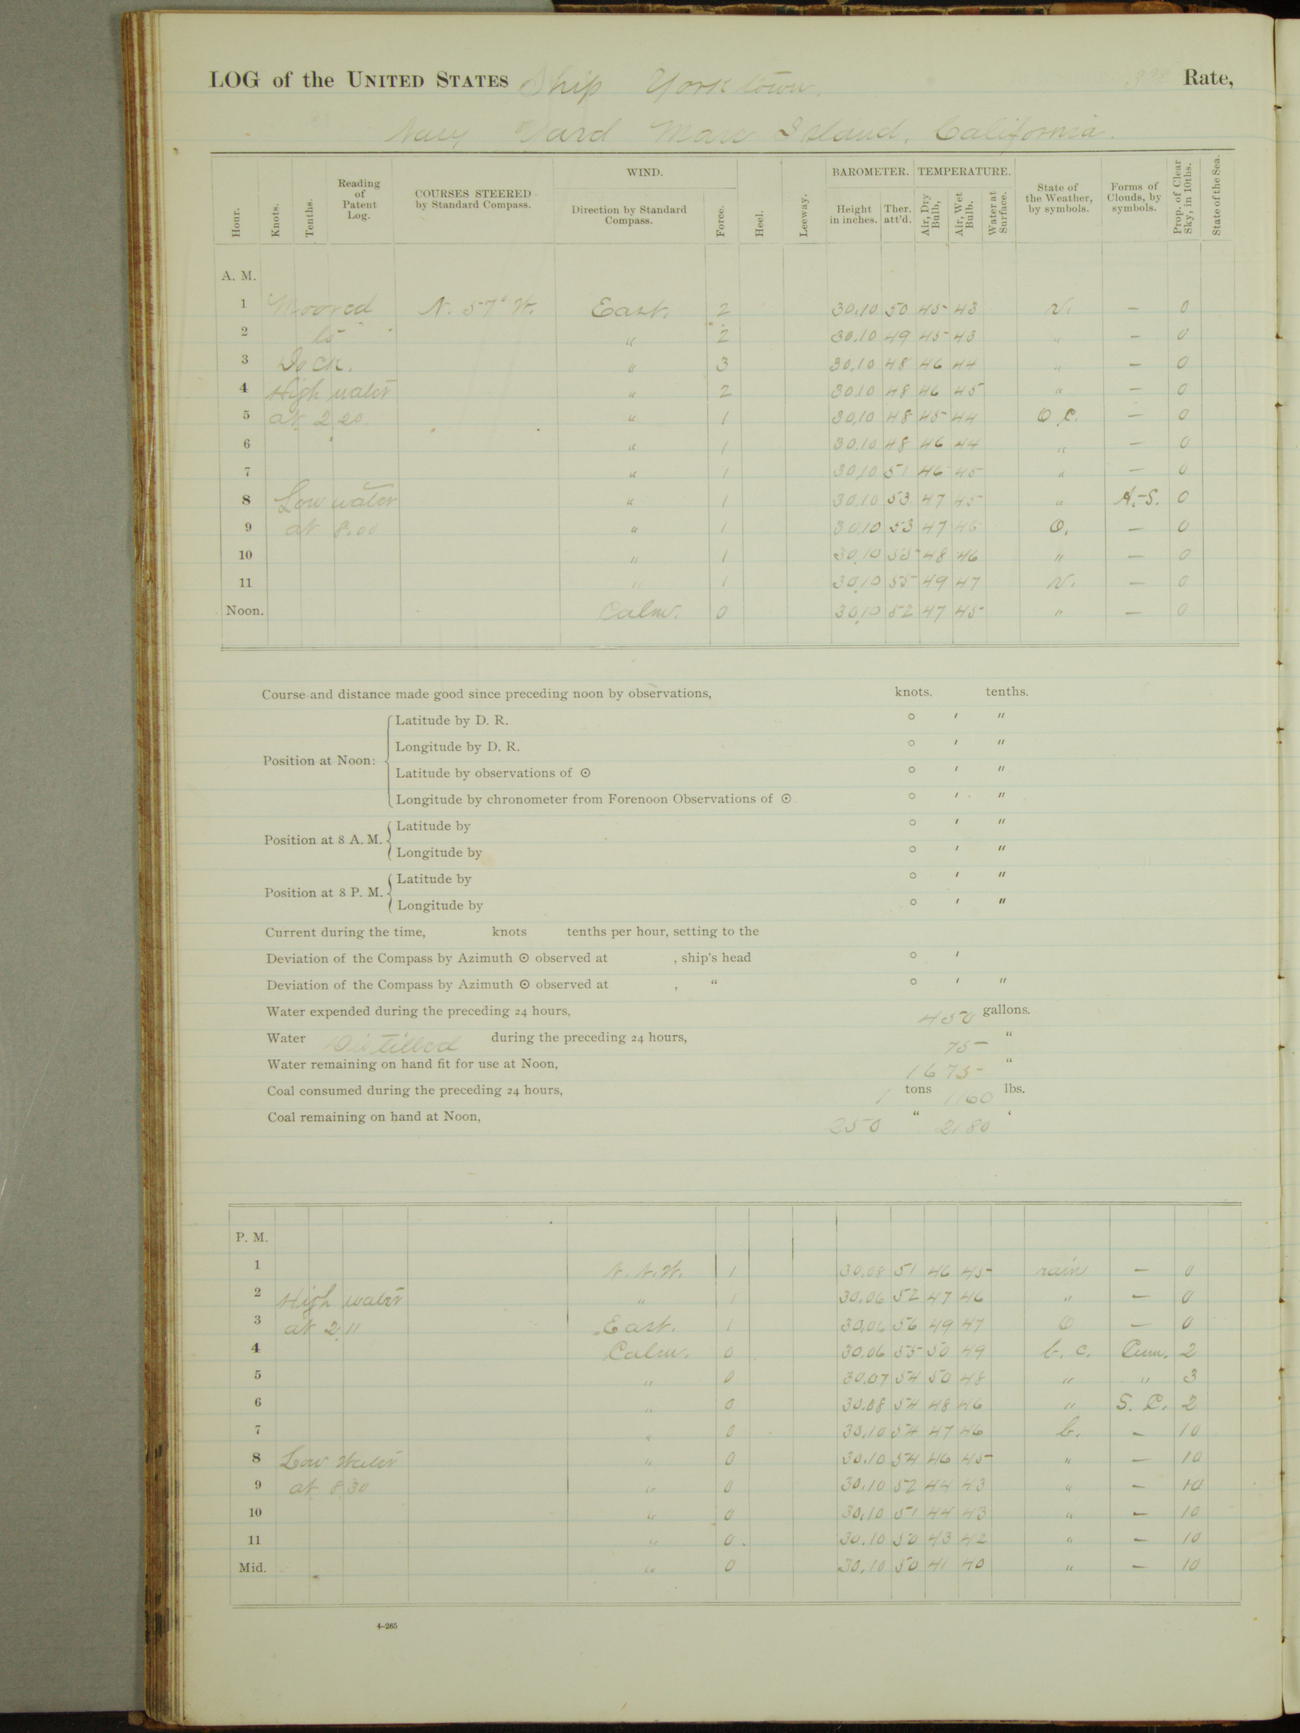 LOG of the UNITED STATES Ship Yorktown. 3rd Rate,
Navy Yard Mare Island, California.
Hour. Knots. Tenths. Reading of Patent Log. COURSES STEERED by Standard Compass. WIND. Direction by Standard Compass. Force. Heel. Leeway. BAROMETER. Height in inches. Ther. att'd. TEMPERATURE. Air, Dry Bulb, Air, Wet Bulb. Water at Surface. State of the Weather, by symbols. Forms of Clouds, by symbols. Prop. of Clear Sky, in 10ths. State of the Sea.
A. M.
1 Moored N. 57° W. East. 2 30.10 50 45 43 r. — 0
2 to " 2 30.10 49 45 43 " — 0
3 Dock. " 3 30.10 48 46 44 " — 0
4 High water " 2 30.10 48 46 45 " — 0
5 at 2 20 " 1 30.10 48 45 44 O.C. — 0
6 " 1 30.10 48 46 44 " — 0
7 " 1 30.10 51 46 45 " — 0
8 Low water " 1 30.10 53 47 45 " A.-S. 0
9 at 8.00 " 1 30.10 53 47 46 O. — 0
10 " 1 30.10 55 48 46 " — 0
11 " 1 30.10 55 49 47 r. — 0
Noon. Calm. 0 30.10 52 47 45 " — 0
Course and distance made good since preceding noon by observations, knots. tenths.
Position at Noon:
Latitude by D. R. ° ′ ″
Longitude by D. R. ° ′ ″
Latitude by observations of ☉ ° ′ ″
Longitude by chronometer from Forenoon Observations of ☉ ° ′ ″
Position at 8 A. M.
Latitude by ° ′ ″
Longitude by ° ′ ″
Position at 8 P. M.
Latitude by ° ′ ″
Longitude by ° ′ ″
Current during the time, knots tenths per hour, setting to the
Deviation of the Compass by Azimuth ☉ observed at , ship's head ° ′
Deviation of the Compass by Azimuth ☉ observed at , " ° ′ ″
Water expended during the preceding 24 hours, 450 gallons.
Water Distilled during the preceding 24 hours, 75 "
Water remaining on hand fit for use at Noon, 1675 "
Coal consumed during the preceding 24 hours, 1 tons 1160 lbs.
Coal remaining on hand at Noon, 250 " 2180 "
P. M.
1 N.N.W. 1 30.08 51 46 45 rain — 0
2 High water " 1 30.06 52 47 46 " — 0
3 at 2 11 East. 1 30.06 56 49 47 O — 0
4 Calm. 0 30.06 55 50 49 b. c. Cum. 2
5 " 0 30.07 54 50 48 " " 3
6 " 0 30.08 54 48 46 " S. C. 2
7 " 0 30.10 54 47 46 b. — 10
8 Low Water " 0 30.10 54 46 45 " — 10
9 at 8 30 " 0 30.10 52 44 43 " — 10
10 " 0 30.10 51 44 43 " — 10
11 " 0 30.10 50 43 42 " — 10
Mid. " 0 30.10 50 41 40 " — 10
4–265